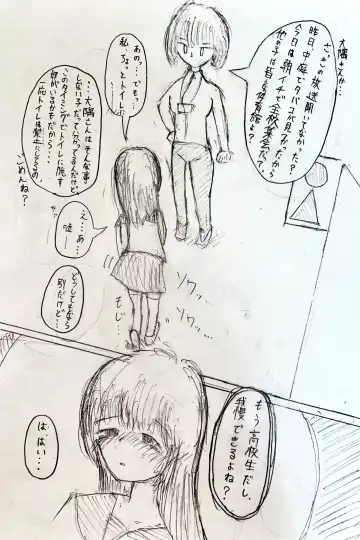 大隅さんか…
さっきの放送聞いてなかった?
昨日、中庭でタバコが見つかったから
今日は朝イチで全校集会だって。
他の子は皆んな体育館よ?
あのっ…でもっ
私ちょっとトイレに…
…大隅さんはそんな事
しない子だって分かってるんだけど
このタイミングでトイレに隠す
奴がいるかもだから…
一応トイレは禁止にしてるの。
ごめんね?
え…あ…
嘘──
どうしてもなら
別だけど…
ソワッ…
ソワッ…
もじ…
もう高校生だし、
我慢できるよね?
は…はい…